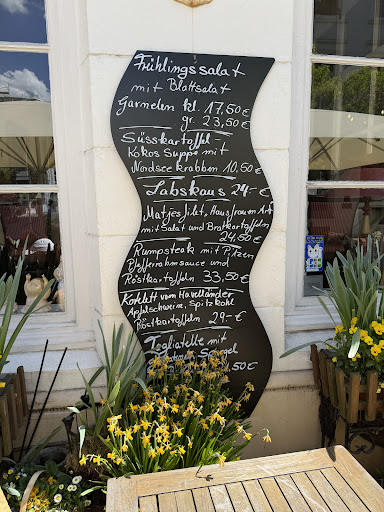 Frühlingssalat
mit Blattsalat
Garnelen kl. 17,50€
gr. 23,50€
Süsskartoffel-
Kokos Suppe mit
Nordseekrabben 10,50€
Labskaus 24,-€
Matjesfilet, Hausfrauen Art
mit Salat und Bratkartoffeln
24,50€
Rumpsteak mit Pilzen
Pfefferrahmsauce und
Röstkartoffeln 33,50€
Kotelett vom Havelländer
Apfelschwein, Spitzkohl
Röstkartoffeln 29.-€
Tagliatelle mit
Spargel
,50€